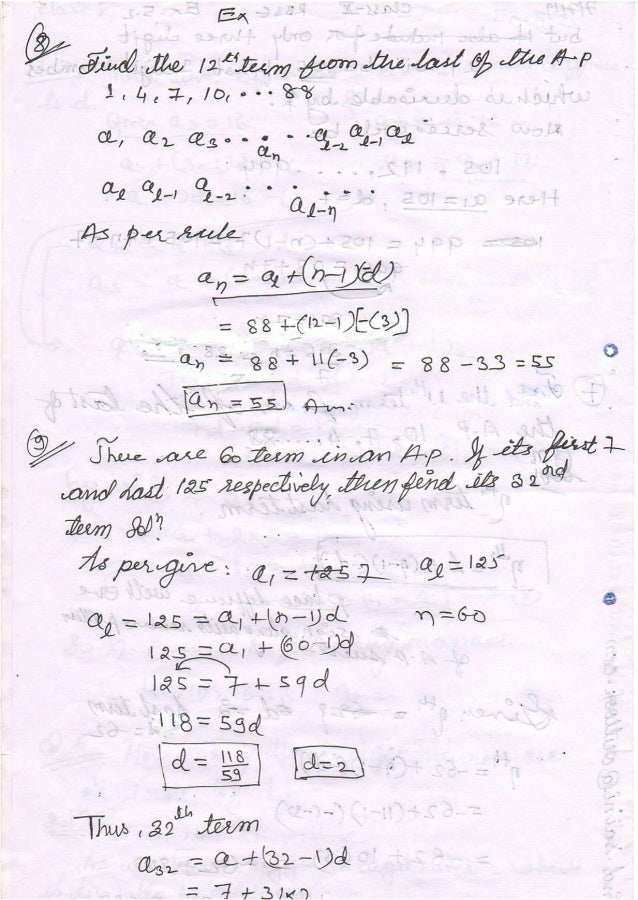 Ex
8
Find the 12th term from the last of the A.P
1, 4, 7, 10, ... 88
a, a2 a3 ... an ... al-2 al-1 al
al al-1 al-2 ... al-n
As per rule
an = al + (n-1)(d)
= 88 + (12-1)[-(3)]
∴ an = 88 + 11(-3) = 88 - 33 = 55
an = 55 Ans.
9
There are 60 term in an A.P. If its first 7
and last 125 respectively, then find its 32nd
term Soln
As per give : a1 = 7 al = 125
al = 125 = a1 + (n-1)d n = 60
125 = a1 + (60-1)d
125 = 7 + 59d
118 = 59d
d = 118/59 d = 2
Thus, 32th term
a32 = a + (32-1)d
= 7 + 31x2